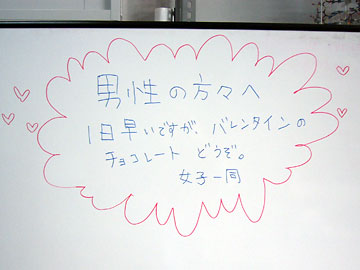 男性の方々へ
1日早いですが、バレンタインの
チョコレート どうぞ。
女子一同